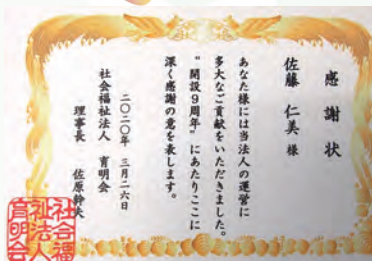 感謝状
佐藤 仁美 様
あなた様には当法人の運営に
多大なご貢献をいただきました。
“開設9周年”にあたりここに
深く感謝の意を表します。
二〇二〇年 三月二六日
社会福祉法人 育明会
理事長 佐原幹夫
社会福
祉法人
育明会